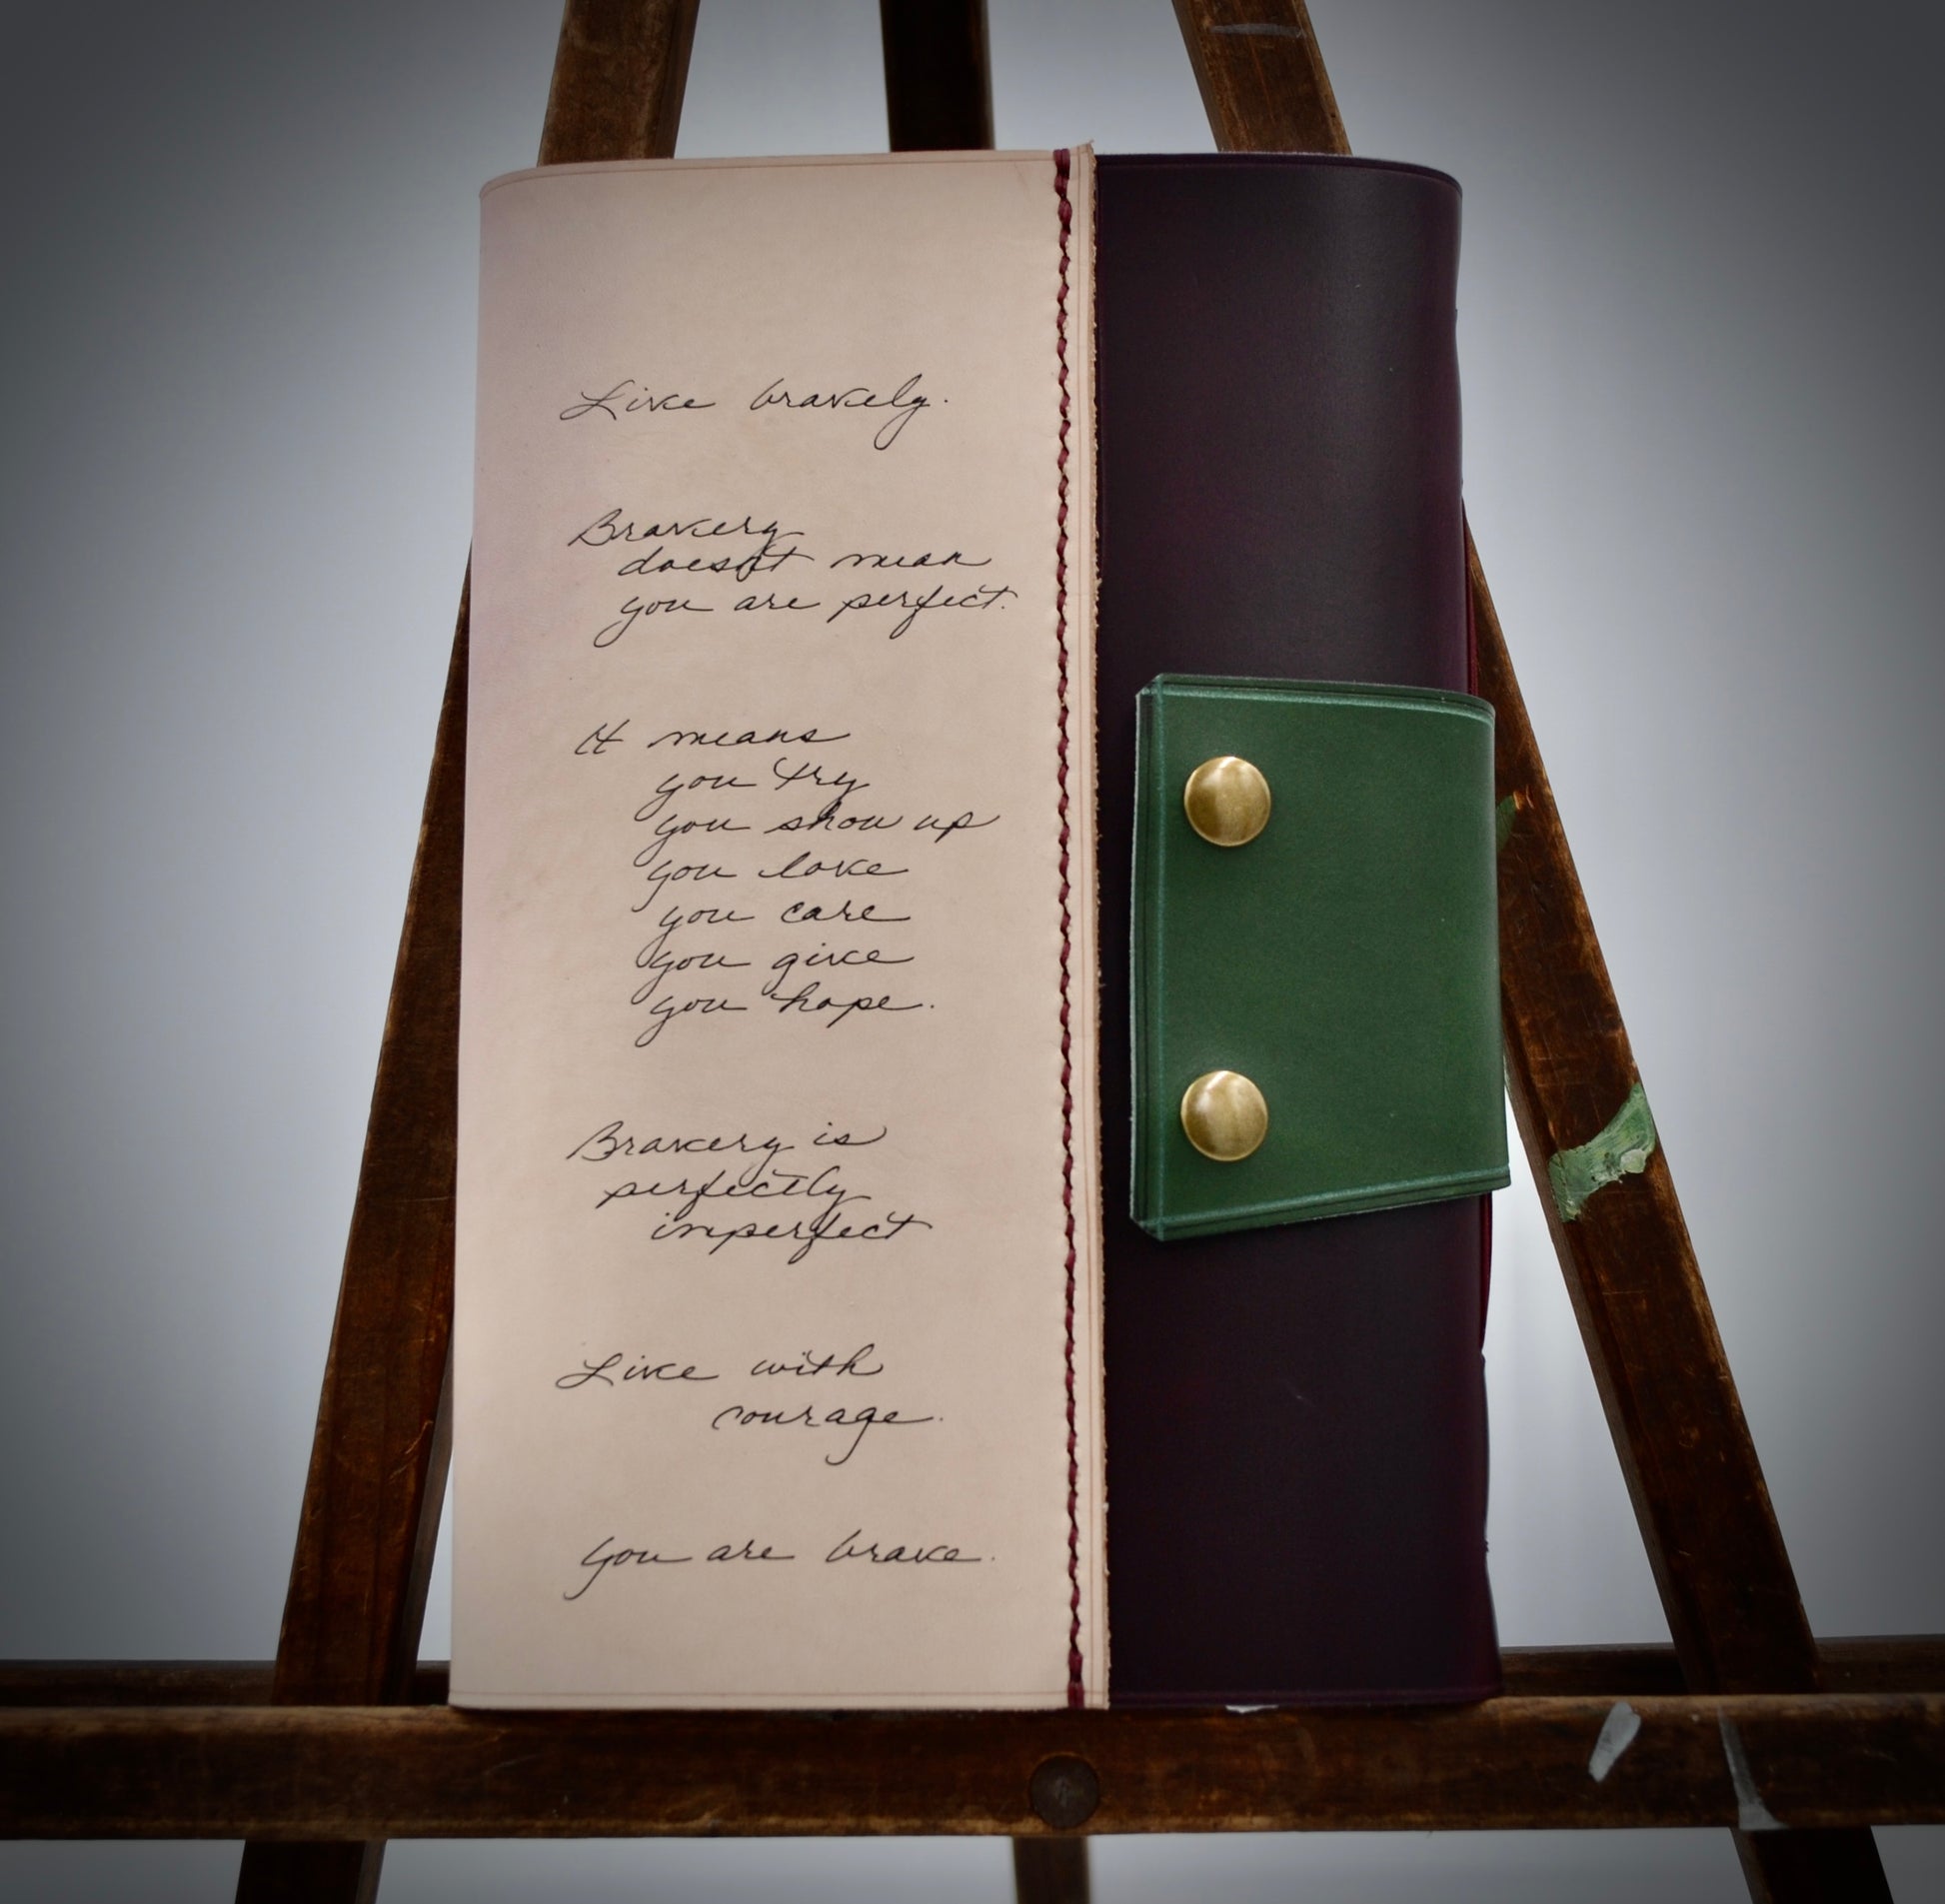 Live bravely.
Bravery
doesn't mean
you are perfect.
It means
you try
you show up
you love
you care
you give
you hope.
Bravery is
perfectly
imperfect
Live with
courage.
You are brave.